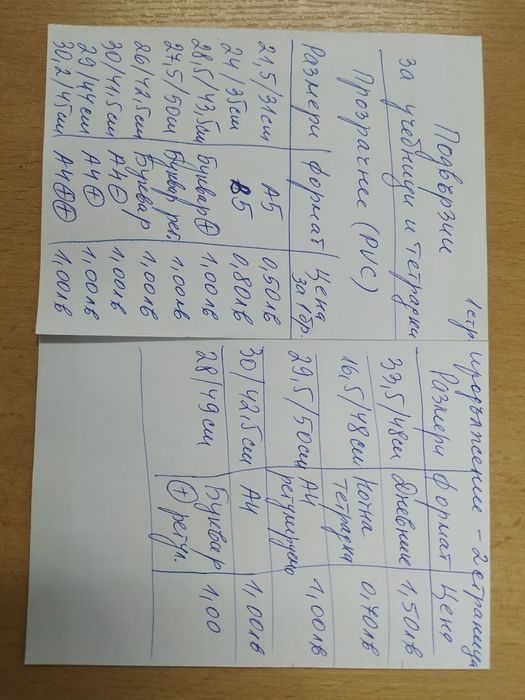 1 стр.
Подвързии
за учебници и тетрадки
Прозрачни (PVC)
Размери Формат Цена за 1бр.
21,5/31см А5 0,50лв
24/35см В5 0,80лв
28,5/43,5см Буквар + 1,00лв
27,5/50см Буквар рег. 1,00лв
26/42,5см Буквар 1,00лв
30/41,5см А4 – 1,00лв
29/44см А4 + 1,00лв
30,2/45см А4 + + 1,00лв
продължение – 2 страница
Размери Формат Цена
33,5/48см Дневник 1,50лв
16,5/48см Нотна тетрадка 0,70лв
29,5/50см А4 регулируема 1,00лв
30/42,5см А4 1,00лв
28/49см Буквар + регул. 1,00